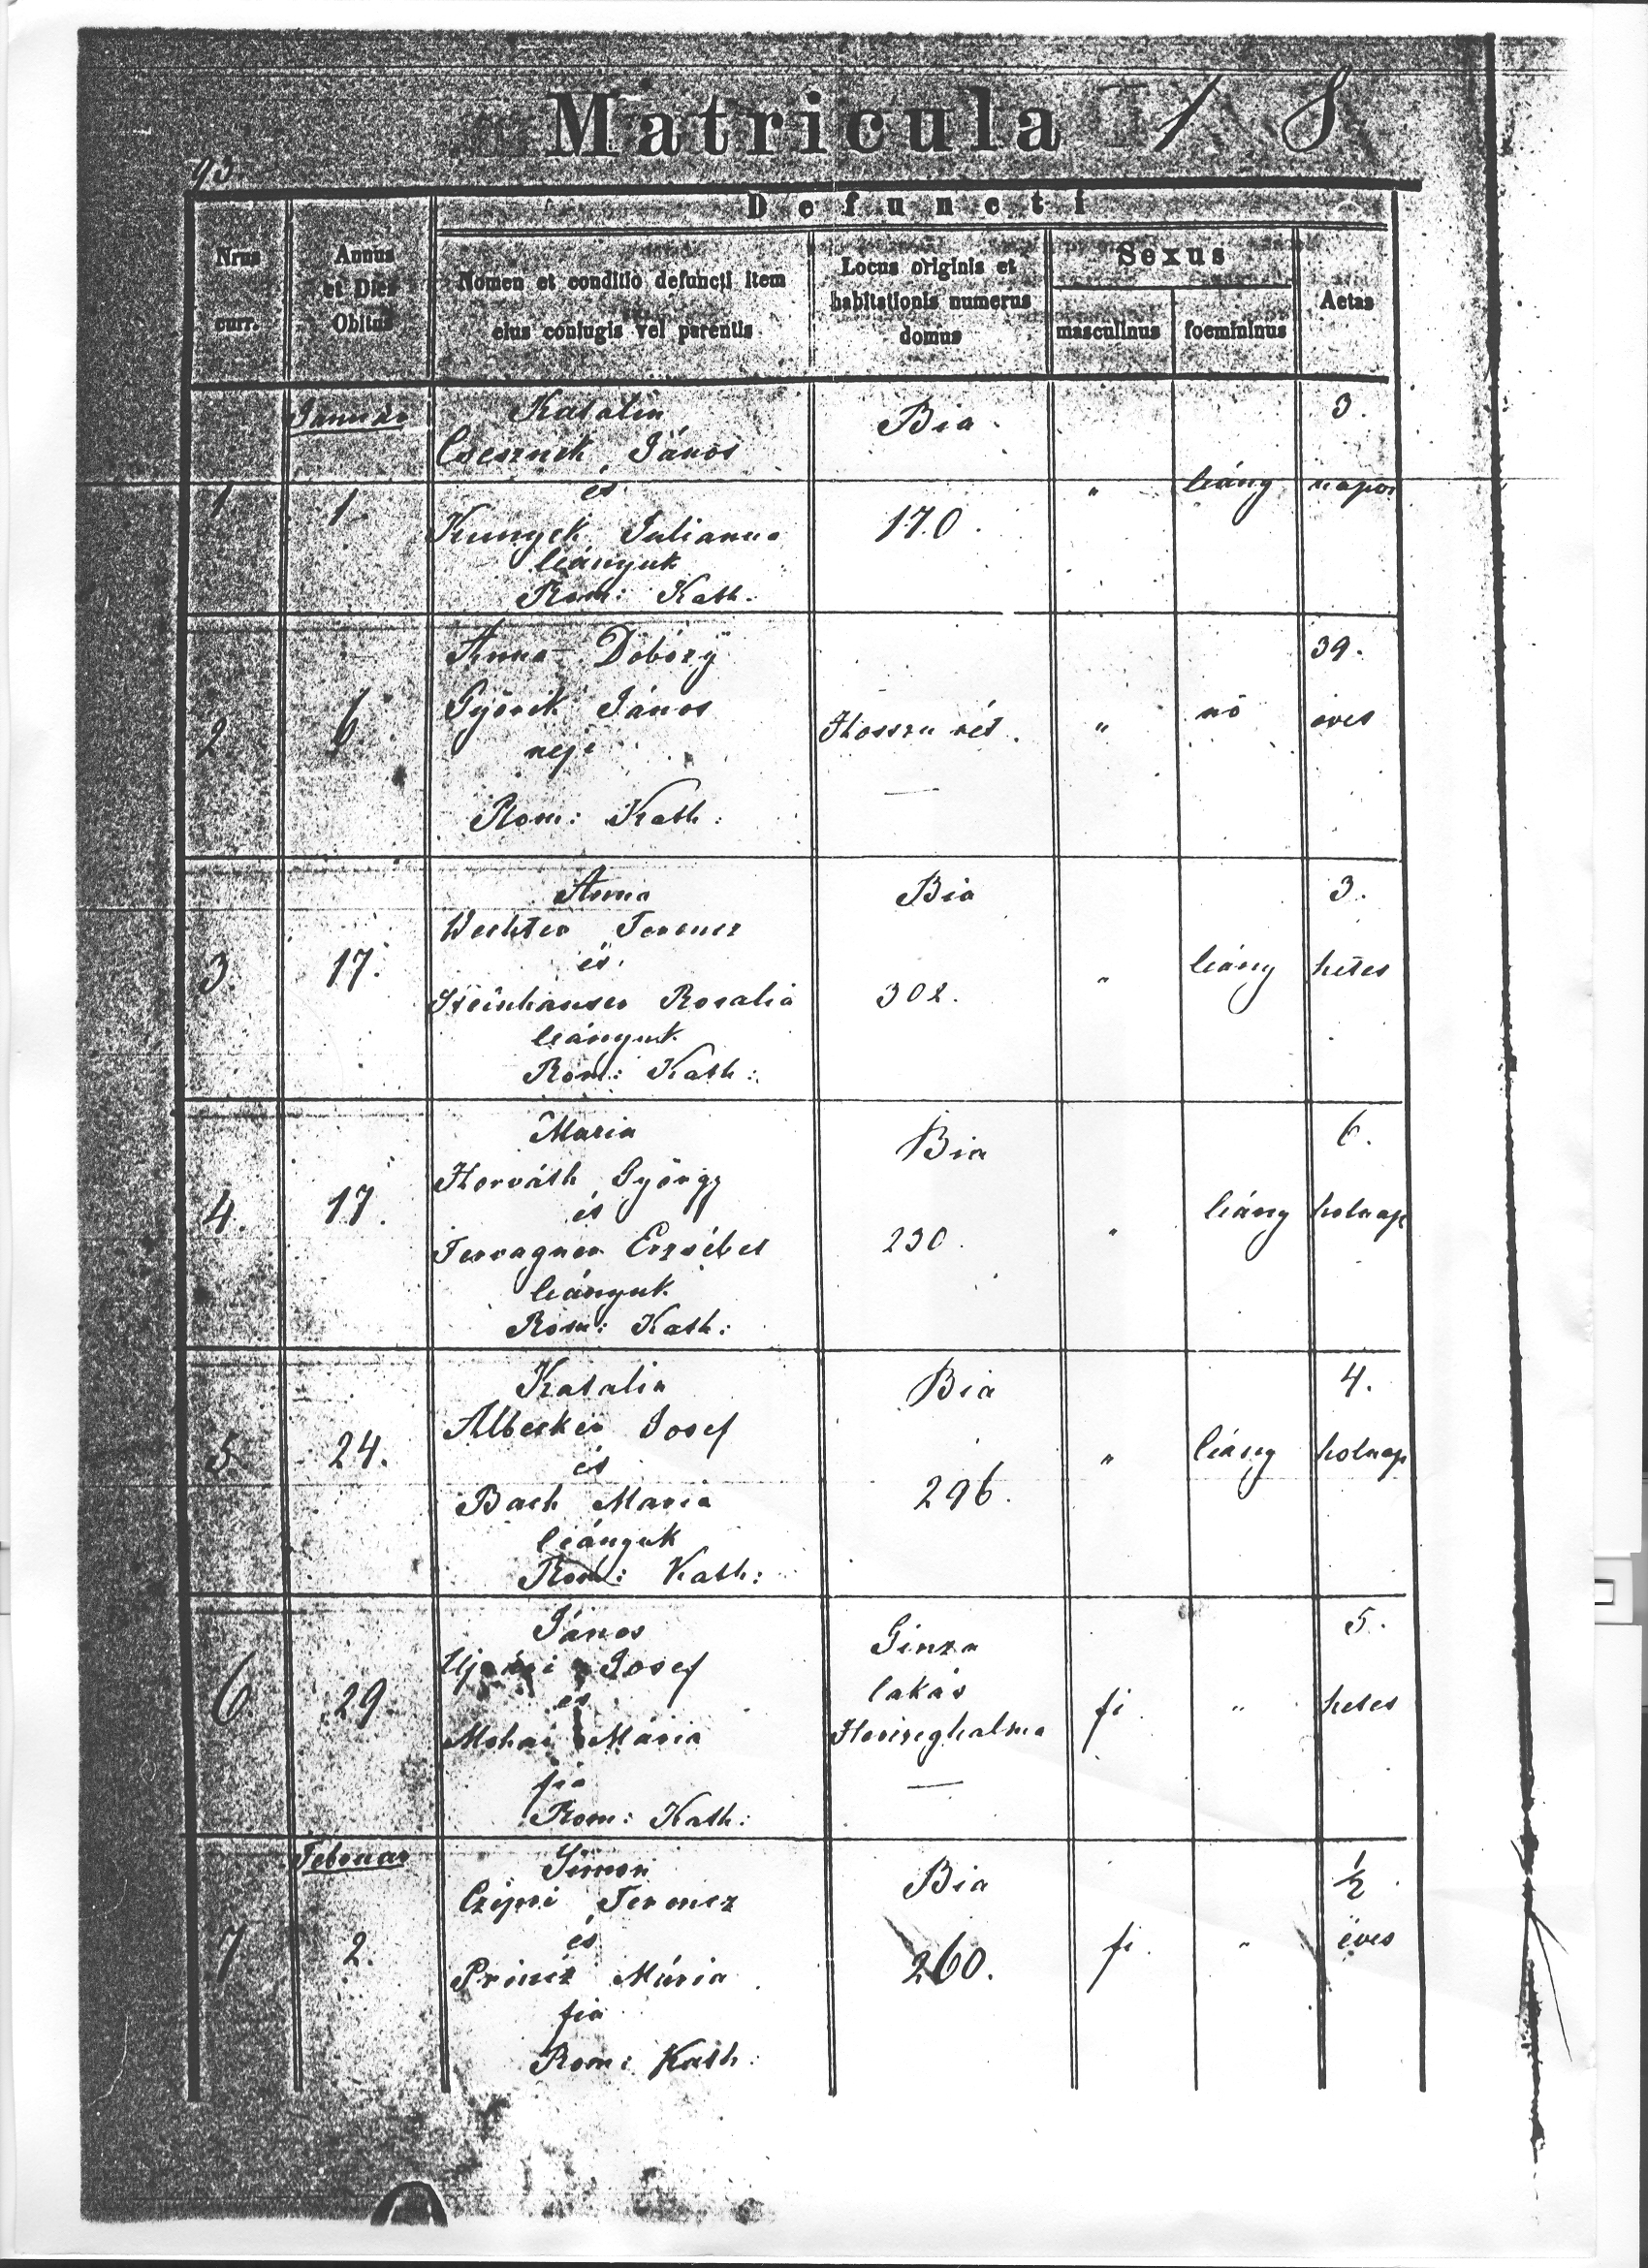 Matricula 1 8
93.
Defuncti
Nrus curr.
Annus et Dies Obitus
Nomen et conditio defuncti item eius coniugis vel parentis
Locus originis et habitationis numerus domus
Sexus
masculinus
foemininus
Aetas
Januar
Katalin
Csesznek János
és
Kunyek Julianna
leányuk
Rom: Kath.
1. 1. Bia 170. " leány 3. napos
Anna Dobozÿ
Györik János
neje
Rom: Kath:
2. 6 Hosszu rét. — " nő 39. éves
Anna
Wechter Ferencz
és
Steinhauser Rosalia
leányuk
Rom: Kath:
3. 17. Bia 302. " leány 3. hetes
Maria
Horváth György
és
Erzsébet
leányuk
Rom: Kath:
4. 17. Bia 230. " leány 6. holnap
Katalin
Albecker Josef
és
Bach Maria
leányuk
Rom: Kath:
5 24. Bia 296. " leány 4. holnap
János
Josef
és
Mohai Mária
fia
Rom: Kath:
6. 29. Ginza lakás Herczeghalma — fi. " 5. hetes
Februar
Simon
Czipri Ferencz
és
Princz Mária
fia
Rom: Kath:
7 2. Bia 260. fi. " ½ éves